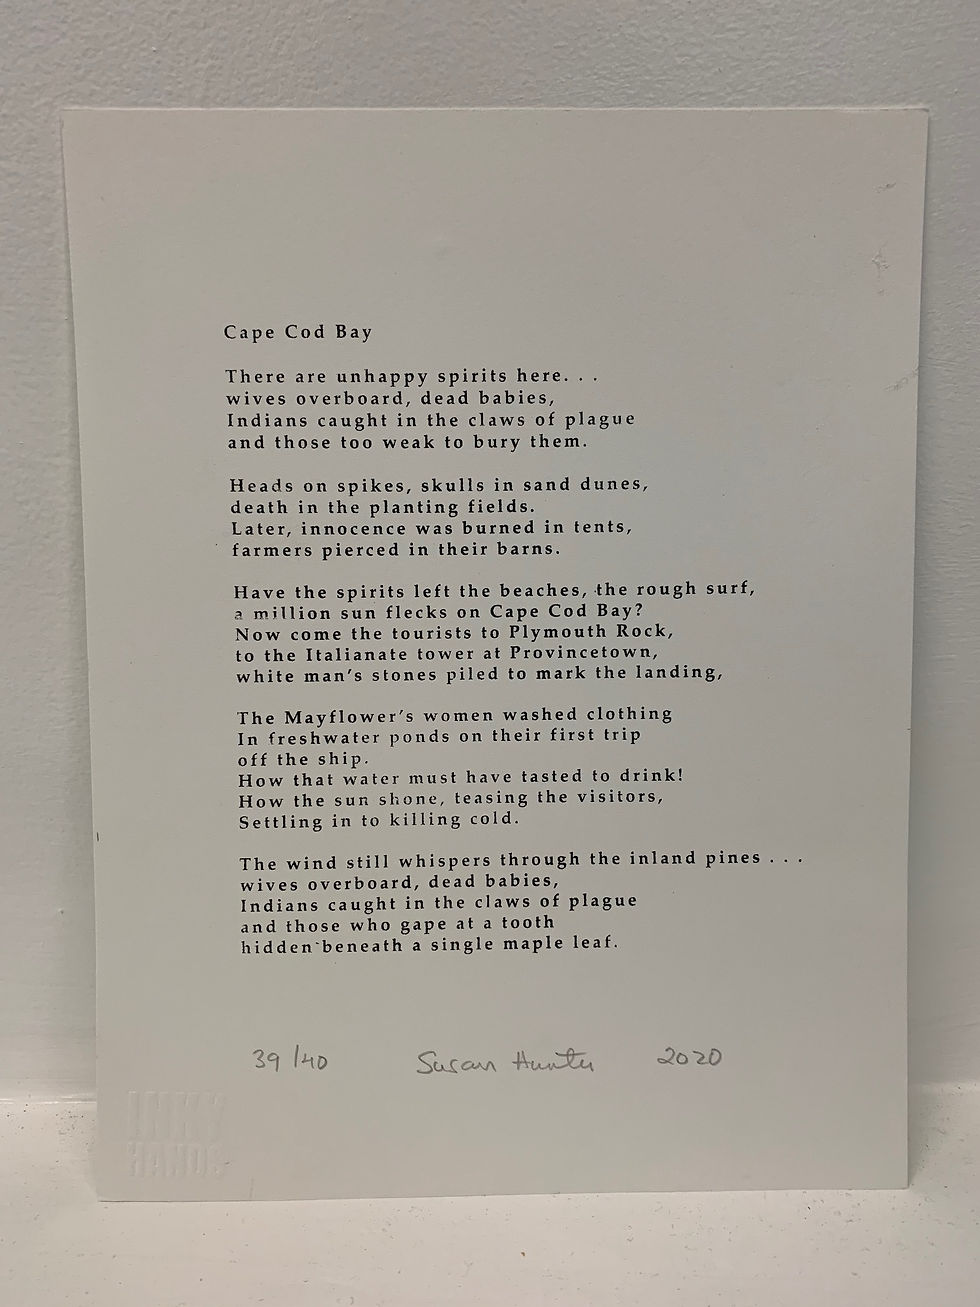 Cape Cod Bay
There are unhappy spirits here. . .
wives overboard, dead babies,
Indians caught in the claws of plague
and those too weak to bury them.
Heads on spikes, skulls in sand dunes,
death in the planting fields.
Later, innocence was burned in tents,
farmers pierced in their barns.
Have the spirits left the beaches, the rough surf,
a million sun flecks on Cape Cod Bay?
Now come the tourists to Plymouth Rock,
to the Italianate tower at Provincetown,
white man's stones piled to mark the landing,
The Mayflower's women washed clothing
In freshwater ponds on their first trip
off the ship.
How that water must have tasted to drink!
How the sun shone, teasing the visitors,
Settling in to killing cold.
The wind still whispers through the inland pines . . .
wives overboard, dead babies,
Indians caught in the claws of plague
and those who gape at a tooth
hidden beneath a single maple leaf.
39/40 Susan Hunter 2020